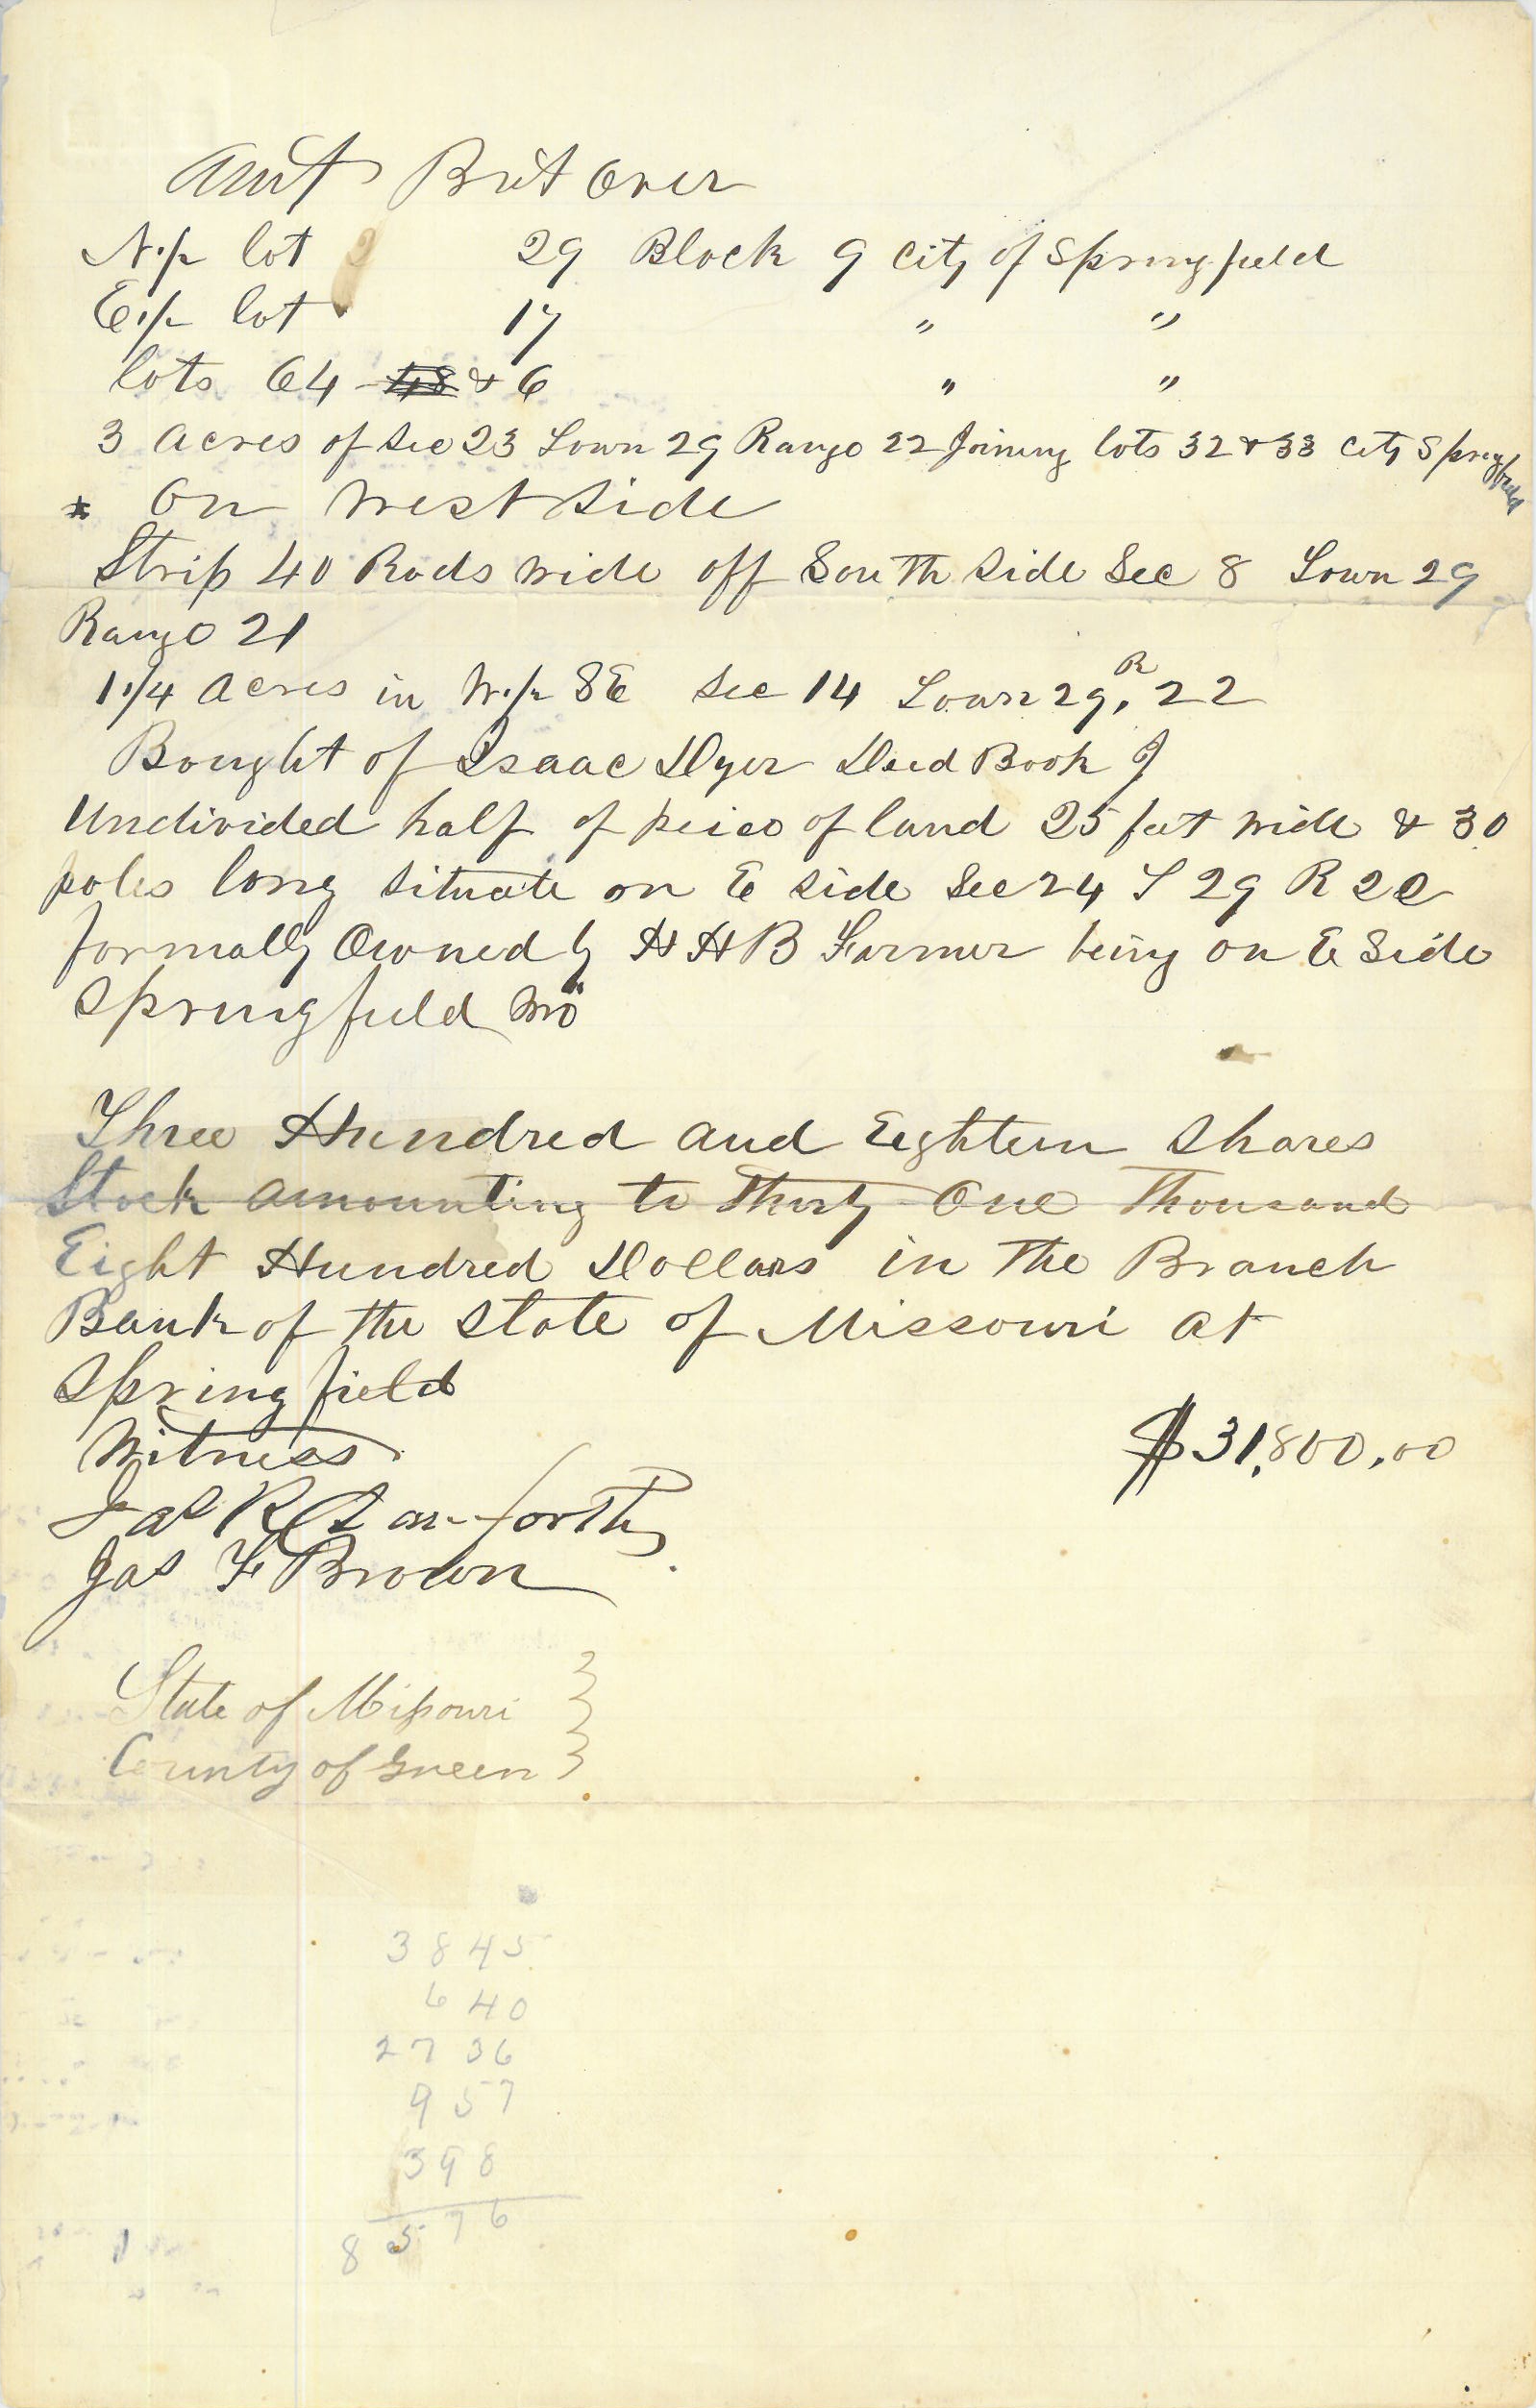 Amt Brt Over
N.½ lot 29 Block 9 City of Springfield
E.½ lot 17 " "
lots 64 - 48 & 6 " "
3 Acres of Sec 23 Town 29 Range 22 Joining lots 32 & 33 City Springfield
* On West Side
Strip 40 Rods wide off South Side Sec 8 Town 29
Range 21
1.¼ Acres in W.½ SE Sec 14 Town 29, R 22
Bought of Isaac Dyer Deed Book J
Undivided half of peice of land 25 feet wide & 30
poles long situate on E side Sec 24 T 29 R 22
formally Owned by H H B Farmer being on E Side
Springfield Mo
Three Hundred and Eighteen Shares
Stock amounting to Thirty One Thousand
Eight Hundred Dollars in The Branch
Bank of the State of Missouri at
Springfield
$31,800,00
Witness
Jas R Danforth
Jas F Brown
State of Missouri }
County of Green }
3845
640
2736
957
398
8576